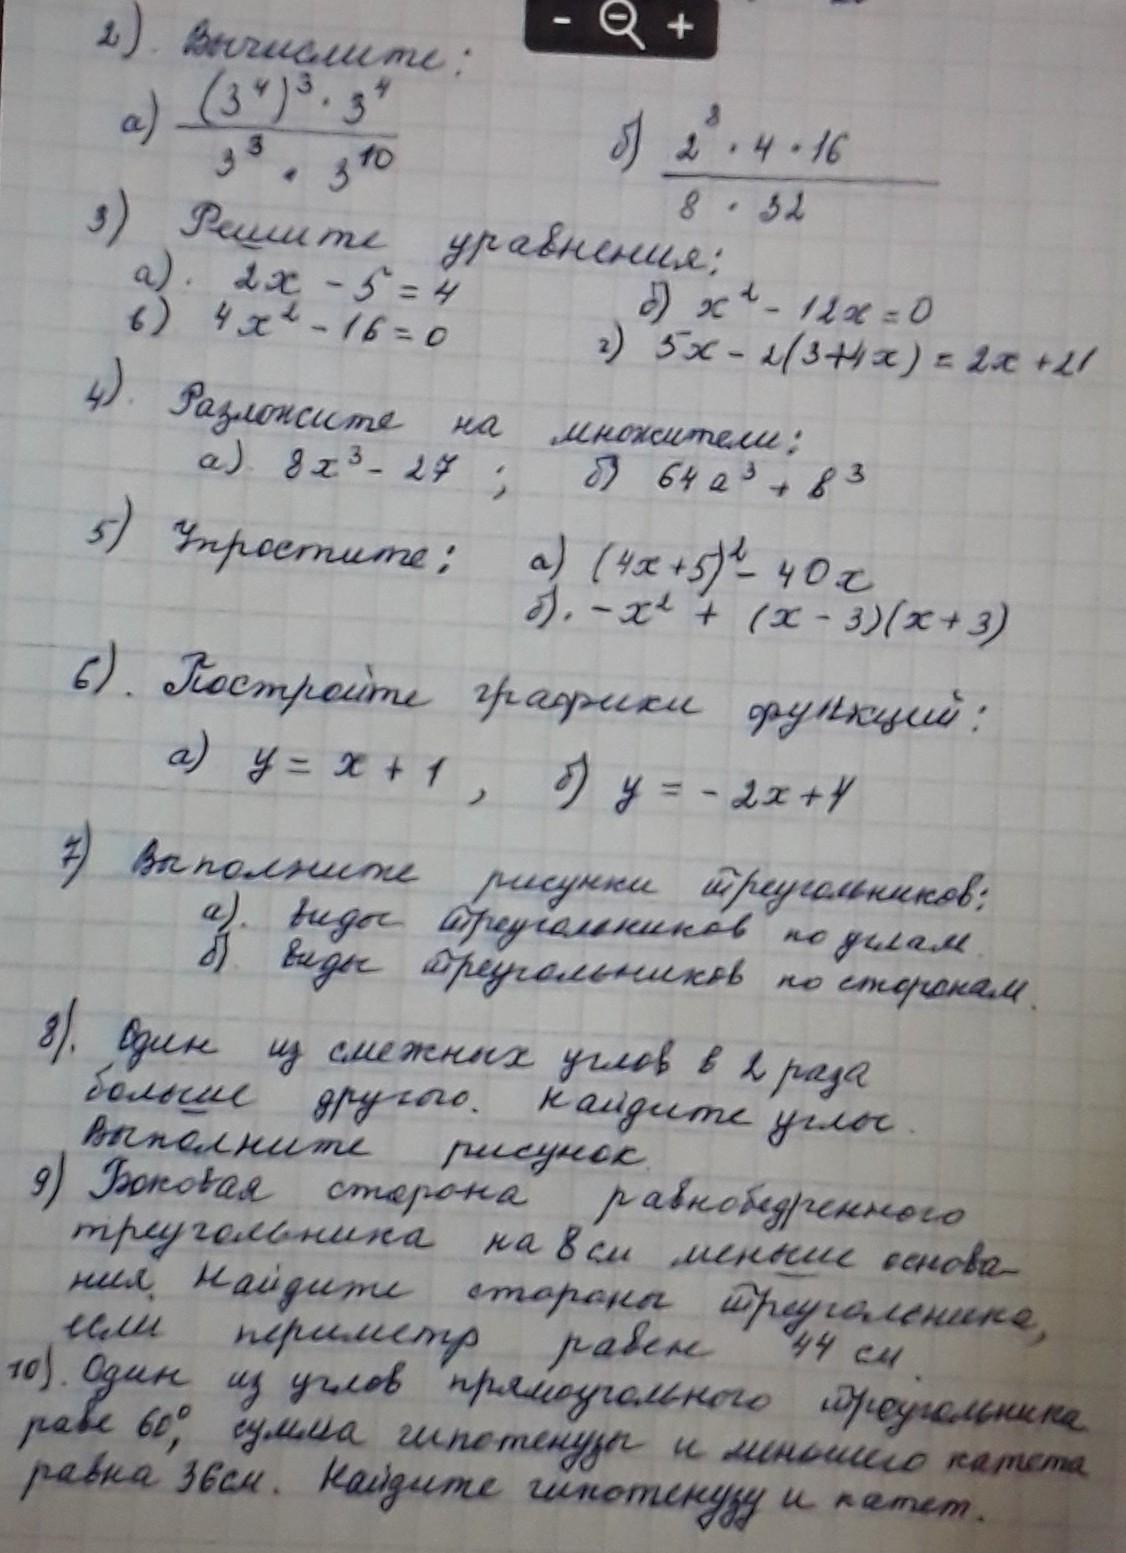 2). Вычислите:
а) (3⁴)³ · 3⁴ / 3³ · 3¹⁰ б) 2⁸ · 4 · 16 / 8 · 32
3) Решите уравнения:
а). 2x - 5 = 4 б) x² - 12x = 0
в) 4x² - 16 = 0 г) 5x - 2(3+4x) = 2x + 21
4). Разложите на множители:
а). 8x³ - 27 ; б) 64a³ + b³
5) Упростите: а) (4x+5)² - 40x
б). -x² + (x - 3)(x + 3)
6). Постройте графики функций:
а) y = x + 1 , б) y = - 2x + 4
7) Выполните рисунки треугольников:
а). виды треугольников по углам.
б) виды треугольников по сторонам.
8). Один из смежных углов в 2 раза
больше другого. Найдите углы.
Выполните рисунок.
9) Боковая сторона равнобедренного
треугольника на 8 см меньше основа-
ния. Найдите стороны треугольника,
если периметр равен 44 см.
10). Один из углов прямоугольного треугольника
раве 60°, сумма гипотенузы и меньшего катета
равна 36 см. Найдите гипотенузу и катет.